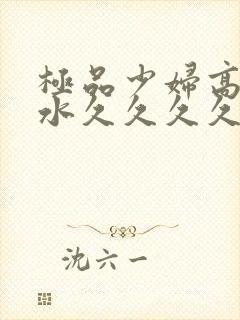 極品少婦高
水久久久久
沈六一